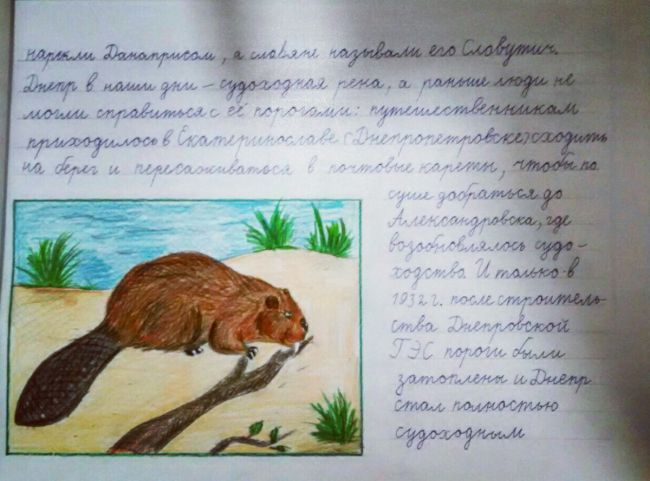 нарекли Данаприсом, а славяне называли его Словутич.
Днепр в наши дни – судоходная река, а раньше люди не
могли справиться с её порогами: путешественникам
приходилось в Екатеринославе (Днепропетровске) сходить
на берег и пересаживаться в почтовые кареты, чтобы по
суше добраться до
Александровска, где
возобновлялось судо-
ходства. И только в
1932 г. после строитель-
ства Днепровской
ГЭС пороги были
затоплены и Днепр
стал полностью
судоходным